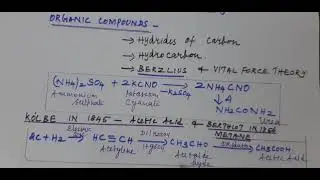 ORGANIC COMPOUNDS -
→ Hydrides of Carbon
→ Hydrocarbon
→ BERZLIUS & VITAL FORCE THEORY
(NH4)2SO4 + 2KCNO → 2NH4CNO
-K2SO4
Ammonium Sulphate Potassium Cyanate
↓Δ
NH2CONH2
Urea
KOLBE IN 1845 - Acetic Acid & BERTHLOT IN 1856 METANE
2C+H2 Electric → HC≡CH Dil H2SO4 HgSO4 → CH3CHO Oxidation → CH3COOH
Acetylene Acetalde hyde Acetic Acid